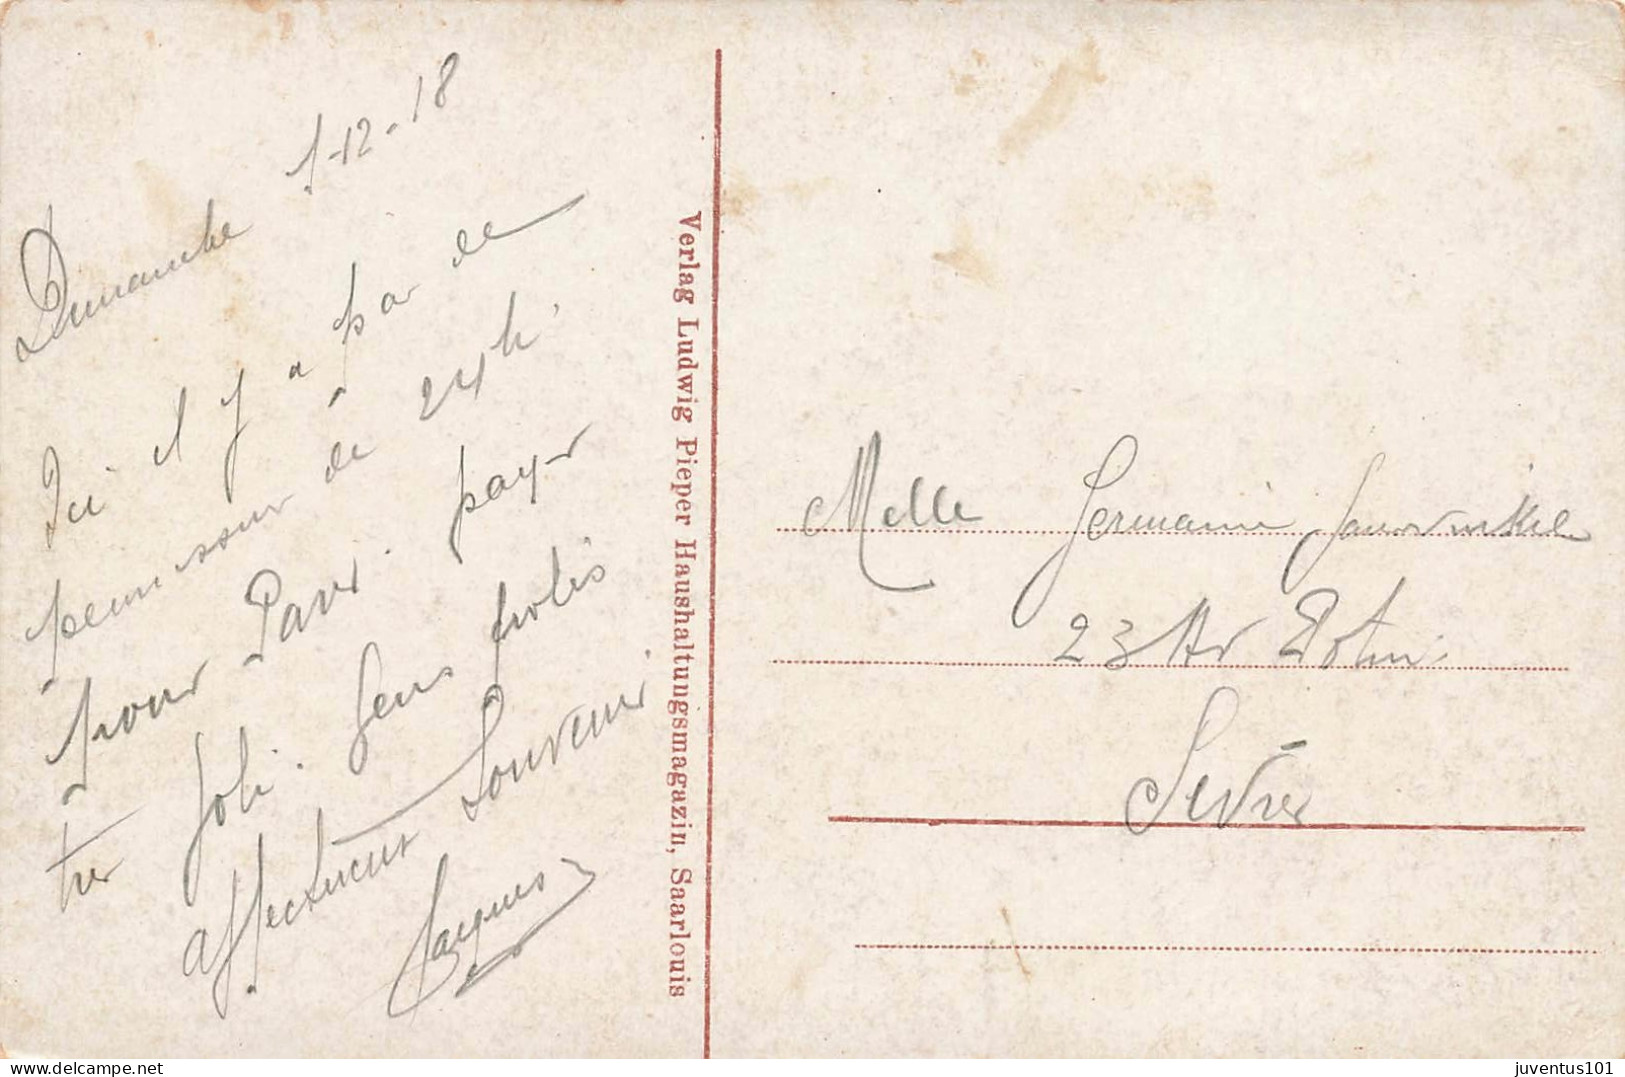 Dimanche 1-12-18
Ici il y a pas de
permission de 24h.
pour Paris. payer
très joli. Gens polis
affectueux Souvenir
Jacques
Verlag Ludwig Pieper Haushaltungsmagazin, Saarlouis
Melle Germaine
23
Sèvres
juventus101